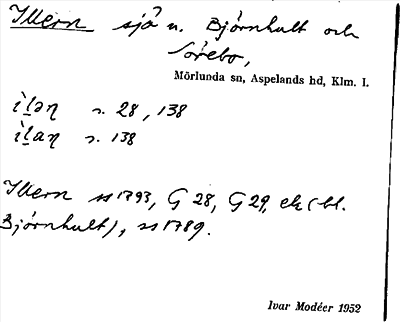 Illern sjö n. Björnhult och
Sörebo,
Mörlunda sn, Aspelands hd, Klm. l.
ìlən s. 28, 138
ìlaŋ s. 138
Illern ss 1793, G 28, G 29, ek (bl.
Björnhult), ss 1789.
Ivar Modéer 1952